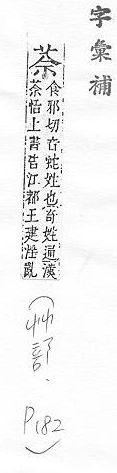 字彙補
荼
食邪切音蛇姓也奇姓通漢
荼恬上書告江都王建淫亂
(艸部. P182)